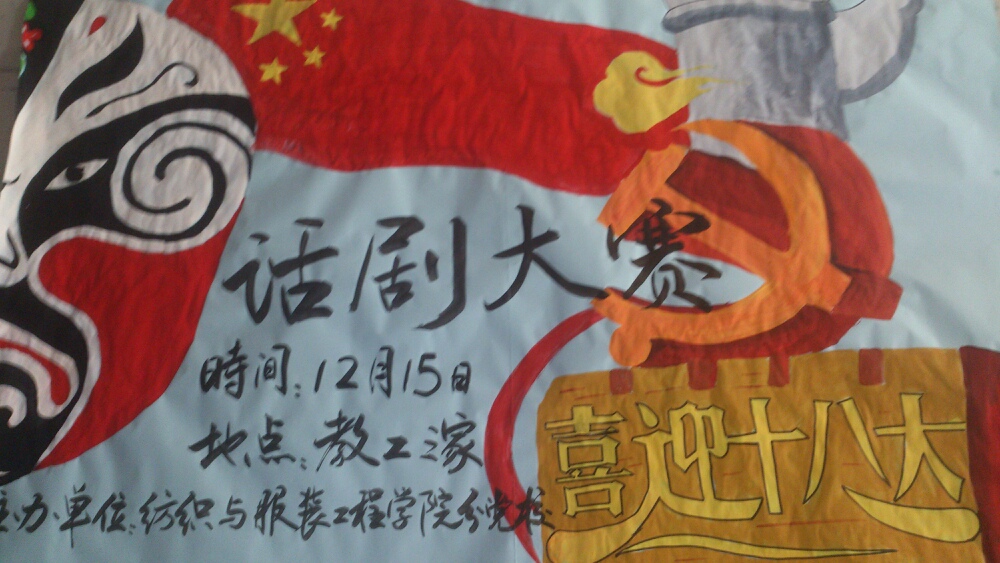 话剧大赛
時间:12月15日
地点:教工之家
主办单位:纺织与服装工程学院分党校
喜迎十八大